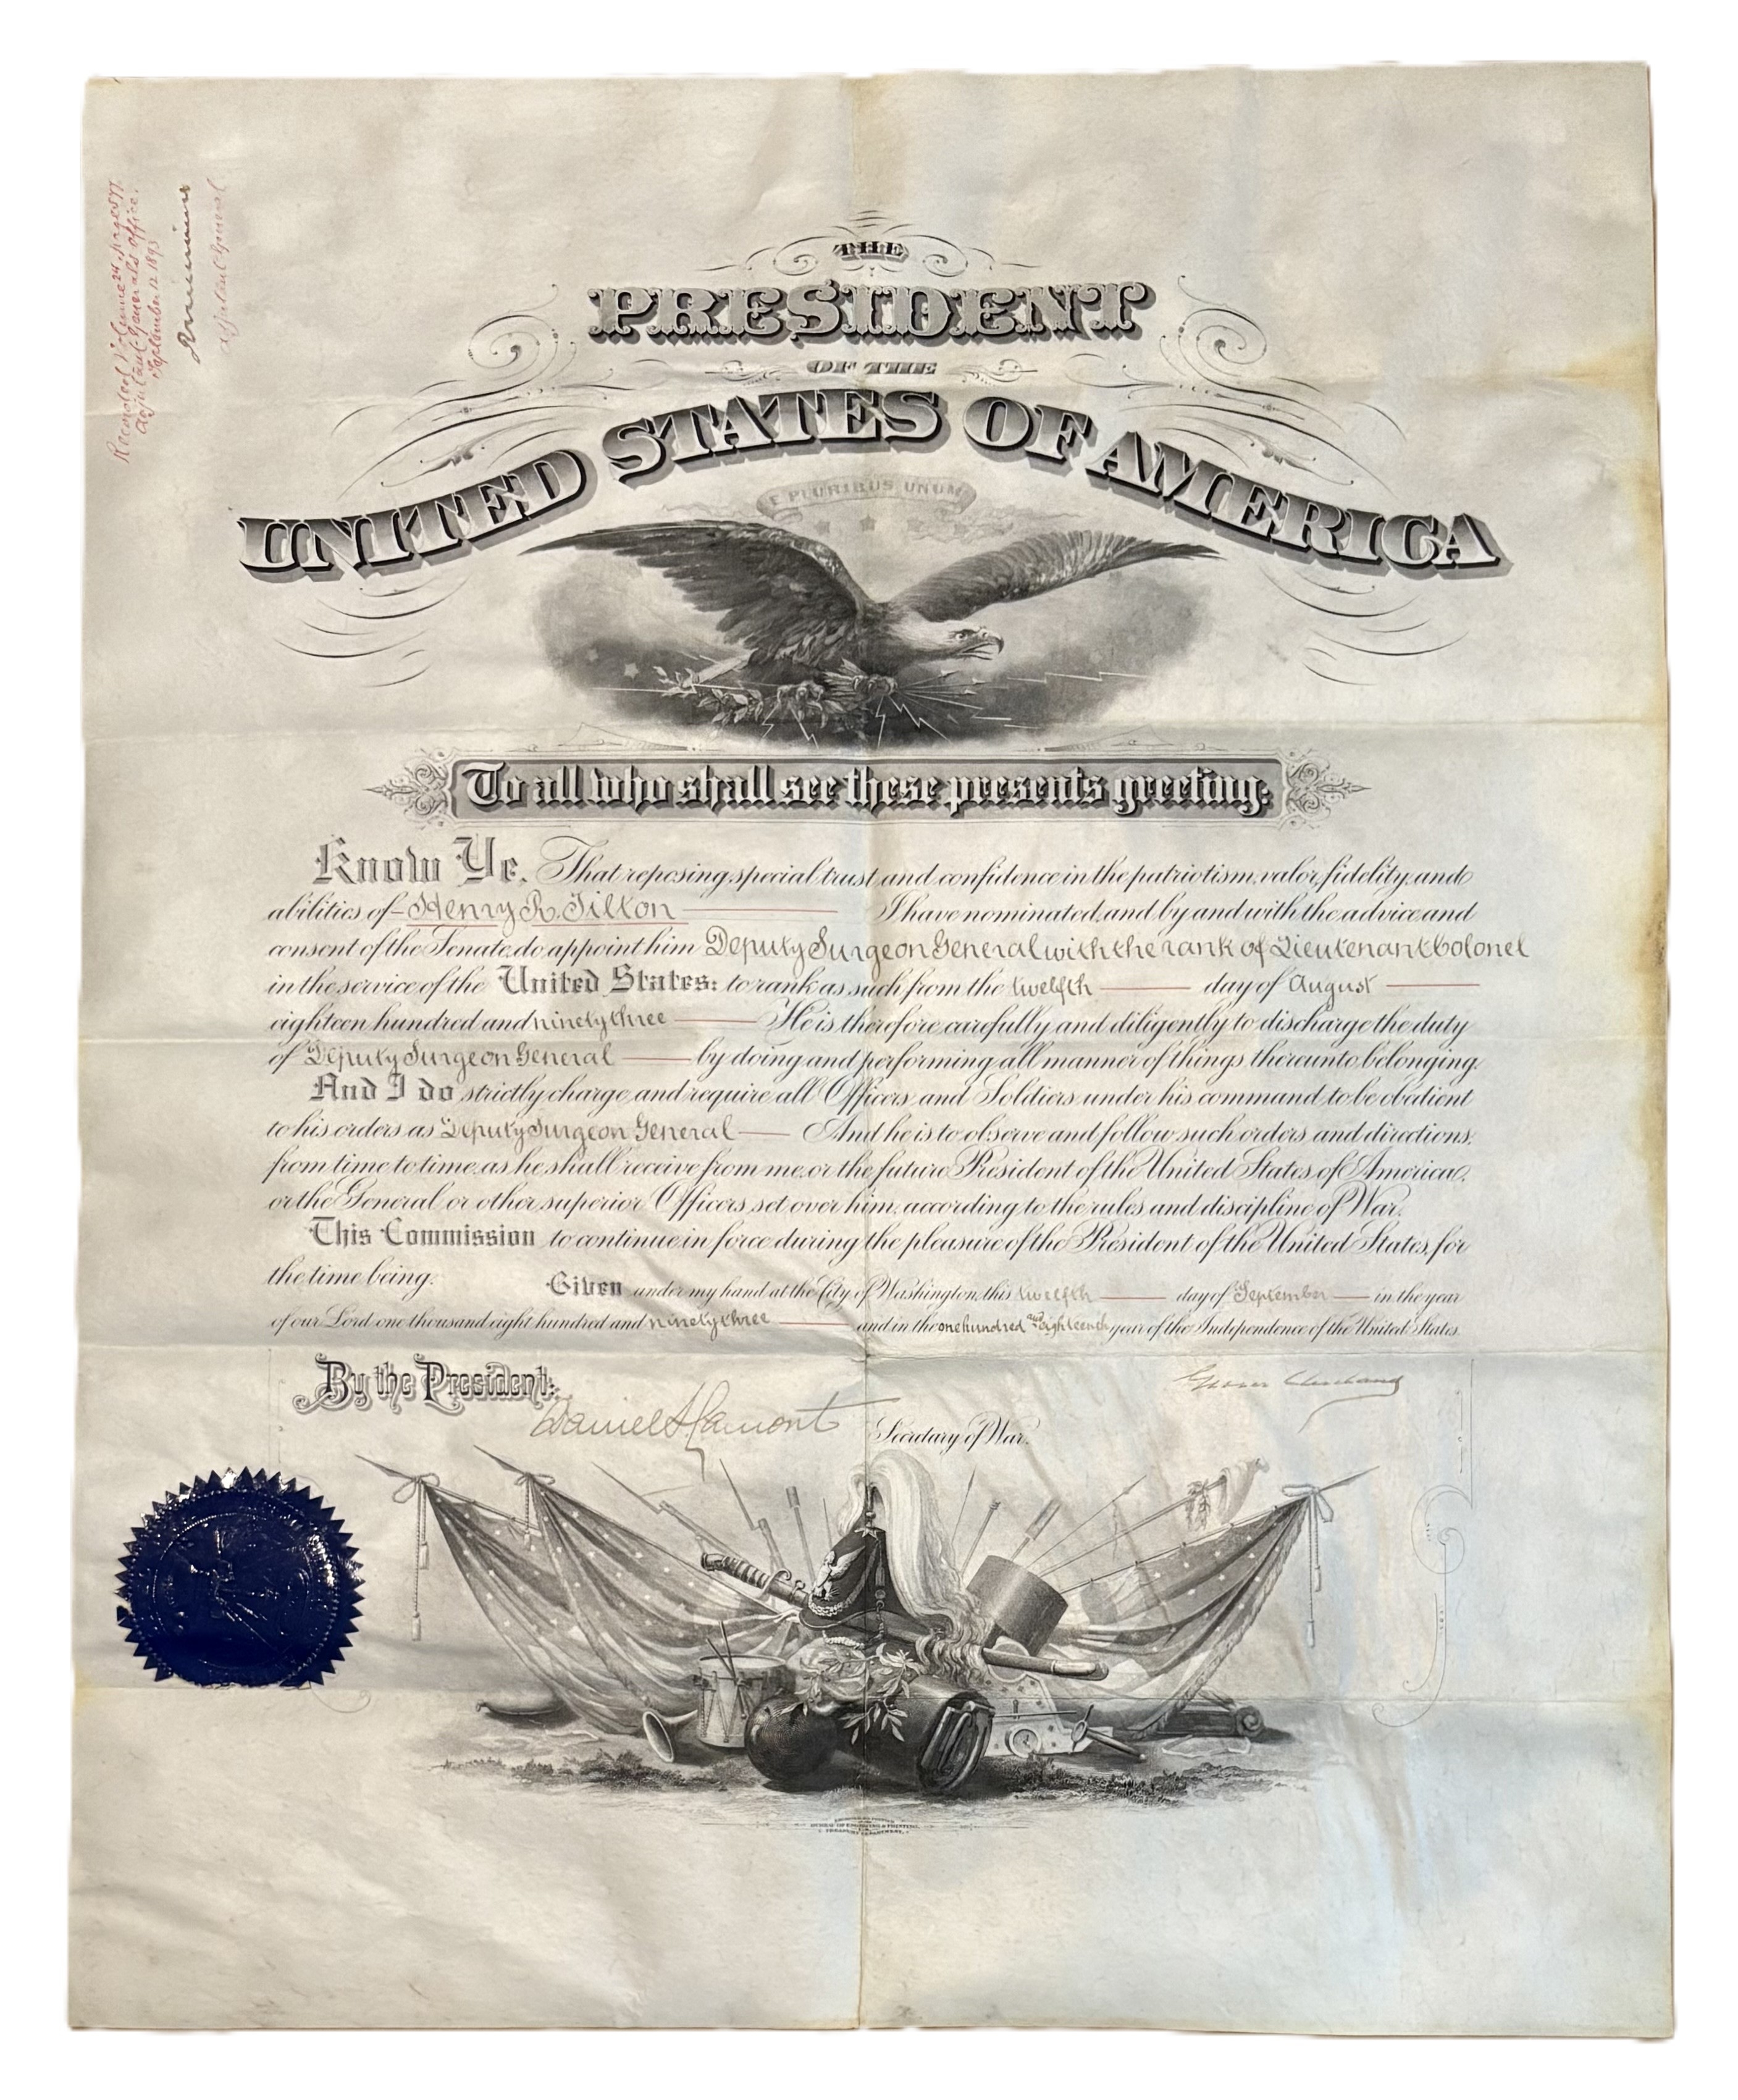 Recorded Volume 24, page 577.
Adjutant General's Office.
September 12 1893
Adjutant General
THE
PRESIDENT
OF THE
UNITED STATES OF AMERICA
E PLURIBUS UNUM
To all who shall see these presents greeting:
Know Ye, That reposing special trust and confidence in the patriotism, valor, fidelity, and
abilities of Henry R. Tilton I have nominated, and by and with the advice and
consent of the Senate, do appoint him Deputy Surgeon General with the rank of Lieutenant Colonel
in the service of the United States: to rank as such from the twelfth day of August
eighteen hundred and ninety three He is therefore carefully and diligently to discharge the duty
of Deputy Surgeon General by doing and performing all manner of things thereunto belonging.
And I do strictly charge and require all Officers and Soldiers under his command to be obedient
to his orders as Deputy Surgeon General And he is to observe and follow such orders, and directions,
from time to time, as he shall receive from me, or the future President of the United States of America,
or the General or other superior Officers set over him, according to the rules and discipline of War.
This Commission to continue in force during the pleasure of the President of the United States, for
the time being. Given under my hand at the City of Washington, this twelfth day of September in the year
of our Lord one thousand eight hundred and ninety three and in the one hundred and eighteenth year of the Independence of the United States.
By the President:
Grover Cleveland
Daniel S. Lamont Secretary of War.
BUREAU OF ENGRAVING & PRINTING,
TREASURY DEPARTMENT.